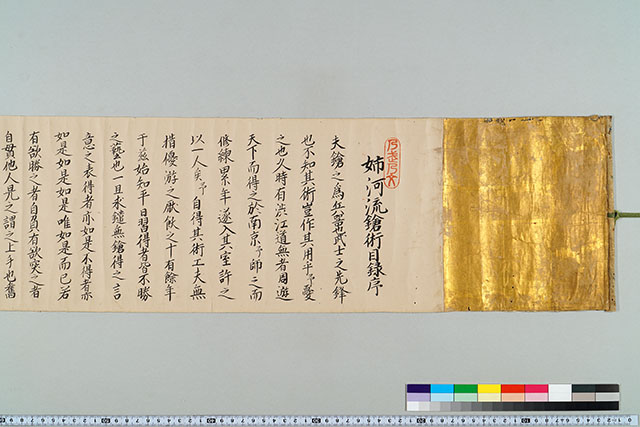 姉河流鎗術目録序
夫鎗之為兵器也武士之先鋒
也不知其術豈作其用乎予愛
之也久時有洪江道無者周遊
天下而得之於南京予師之而
修練累年遂入其室許之
以一人矣予自得其術工夫無
措優游之厭飫之十有餘年
于茲始知平日習得者皆不勝
之藝也一旦求鑓無鎗得之言
意之表得者亦如是不得者亦
如是如是如是唯如是而已若
有欲勝之者自負有欲突之者
自貫他人見之謂之上手也舊